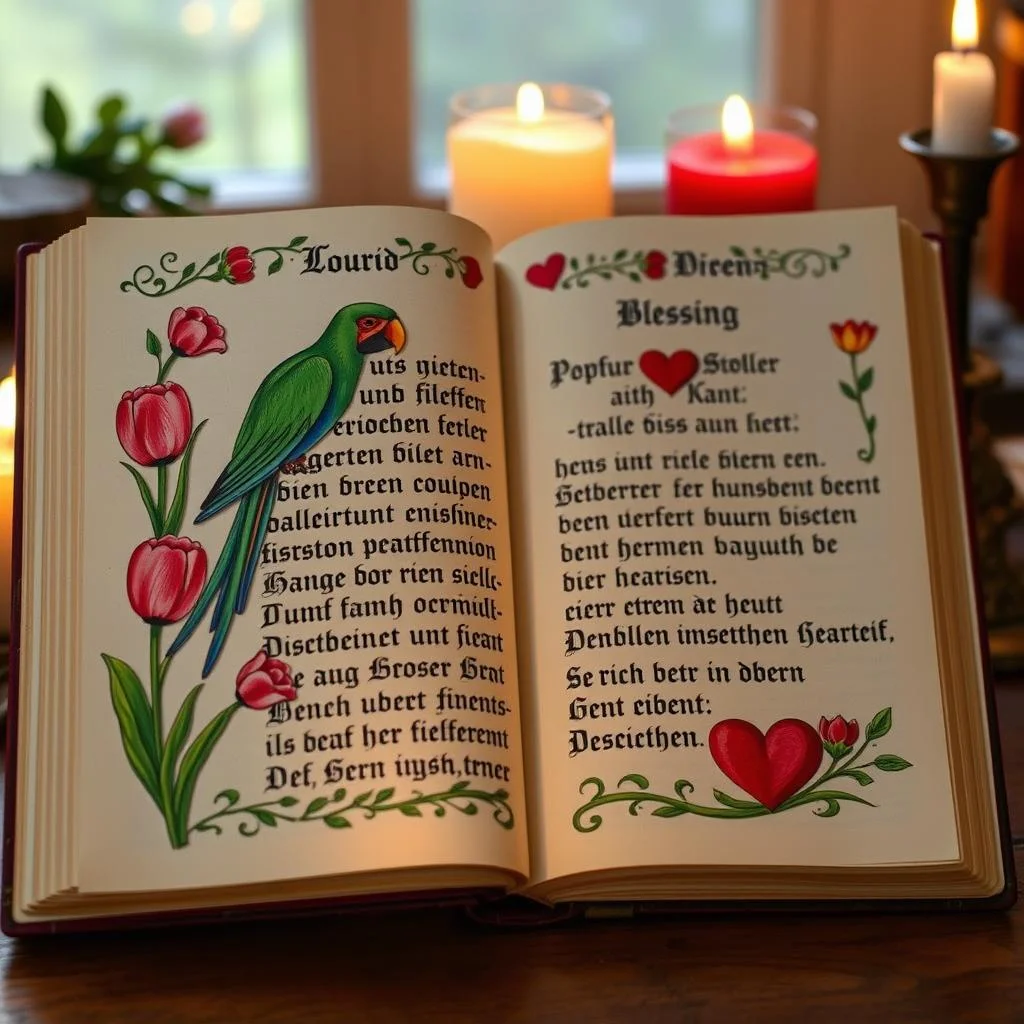 Lourid
uts gieten-
und fileffen
eriochen fetler
gerten bilet arn-
bien breen couipen
dalleirtunt enisfiner-
fisrston peatffennion
Hange bor rien sicllc-
Dumf famh ocrmidlt-
Disctbeinet unt fieart
e aug Groser Grnt
Bench ubert finents-
ils beaf her fielferemt
Def, Gern iiysh,trner
Direnn
Blessing
Popfur Stoller
aith Kant:
-tralle biss aun hert:
hens unt riele btern een.
Getberrer fer hunsbent beent
been uerfert buurn biscten
bent hermen bayuuth be
bier hearisen.
cierr etrem at heutt
Denbllen imsetthen Gearteif,
Se rich betr in dbern
Gent eibent:
Descicthen.